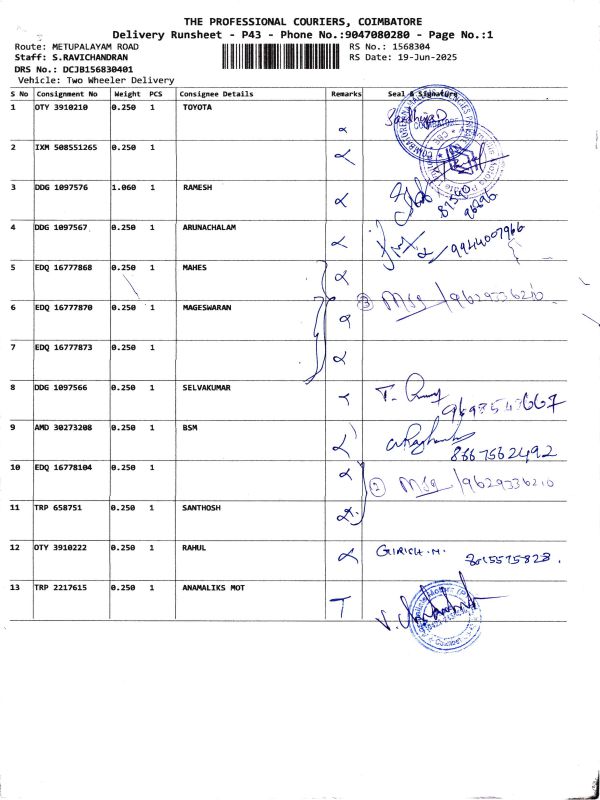 THE PROFESSIONAL COURIERS, COIMBATORE
Delivery Runsheet - P43 - Phone No.:9047080280 - Page No.:1
Route: METUPALAYAM ROAD RS No.: 1568304
Staff: S.RAVICHANDRAN RS Date: 19-Jun-2025
DRS No.: DCJB156830401
Vehicle: Two Wheeler Delivery
S No Consignment No Weight PCS Consignee Details Remarks Seal & Signature
1 OTY 3910210 0.250 1 TOYOTA
2 IXM 508551265 0.250 1
3 DDG 1097576 1.060 1 RAMESH
4 DDG 1097567 0.250 1 ARUNACHALAM 9944007966
5 EDQ 16777868 0.250 1 MAHES
6 EDQ 16777870 0.250 1 MAGESWARAN 3 MSg 9629336210
7 EDQ 16777873 0.250 1
8 DDG 1097566 0.250 1 SELVAKUMAR
9 AMD 30273208 0.250 1 BSM 8667562492
10 EDQ 16778104 0.250 1 2 MSg 9629336210
11 TRP 658751 0.250 1 SANTHOSH
12 OTY 3910222 0.250 1 RAHUL GIRISH.M. 8015515828.
13 TRP 2217615 0.250 1 ANAMALIKS MOT T